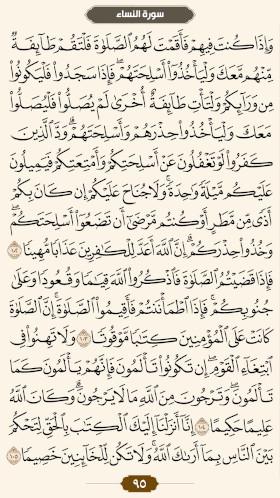 سورة النساء
وَإِذَا كُنتَ فِيهِمْ فَأَقَمْتَ لَهُمُ ٱلصَّلَوٰةَ فَلْتَقُمْ طَآئِفَةٌ
مِّنْهُم مَّعَكَ وَلْيَأْخُذُوٓا۟ أَسْلِحَتَهُمْ فَإِذَا سَجَدُوا۟ فَلْيَكُونُوا۟
مِن وَرَآئِكُمْ وَلْتَأْتِ طَآئِفَةٌ أُخْرَىٰ لَمْ يُصَلُّوا۟ فَلْيُصَلُّوا۟
مَعَكَ وَلْيَأْخُذُوا۟ حِذْرَهُمْ وَأَسْلِحَتَهُمْ ۗ وَدَّ ٱلَّذِينَ
كَفَرُوا۟ لَوْ تَغْفُلُونَ عَنْ أَسْلِحَتِكُمْ وَأَمْتِعَتِكُمْ فَيَمِيلُونَ
عَلَيْكُم مَّيْلَةً وَٰحِدَةً ۚ وَلَا جُنَاحَ عَلَيْكُمْ إِن كَانَ بِكُمْ
أَذًى مِّن مَّطَرٍ أَوْ كُنتُم مَّرْضَىٰٓ أَن تَضَعُوٓا۟ أَسْلِحَتَكُمْ ۖ
وَخُذُوا۟ حِذْرَكُمْ ۗ إِنَّ ٱللَّهَ أَعَدَّ لِلْكَٰفِرِينَ عَذَابًا مُّهِينًا ١٠٢
فَإِذَا قَضَيْتُمُ ٱلصَّلَوٰةَ فَٱذْكُرُوا۟ ٱللَّهَ قِيَٰمًا وَقُعُودًا وَعَلَىٰ
جُنُوبِكُمْ ۚ فَإِذَا ٱطْمَأْنَنتُمْ فَأَقِيمُوا۟ ٱلصَّلَوٰةَ ۚ إِنَّ ٱلصَّلَوٰةَ
كَانَتْ عَلَى ٱلْمُؤْمِنِينَ كِتَٰبًا مَّوْقُوتًا ١٠٣ وَلَا تَهِنُوا۟ فِى
ٱبْتِغَآءِ ٱلْقَوْمِ ۖ إِن تَكُونُوا۟ تَأْلَمُونَ فَإِنَّهُمْ يَأْلَمُونَ كَمَا
تَأْلَمُونَ ۖ وَتَرْجُونَ مِنَ ٱللَّهِ مَا لَا يَرْجُونَ ۗ وَكَانَ ٱللَّهُ
عَلِيمًا حَكِيمًا ١٠٤ إِنَّآ أَنزَلْنَآ إِلَيْكَ ٱلْكِتَٰبَ بِٱلْحَقِّ لِتَحْكُمَ
بَيْنَ ٱلنَّاسِ بِمَآ أَرَىٰكَ ٱللَّهُ ۚ وَلَا تَكُن لِّلْخَآئِنِينَ خَصِيمًا ١٠٥
٩٥